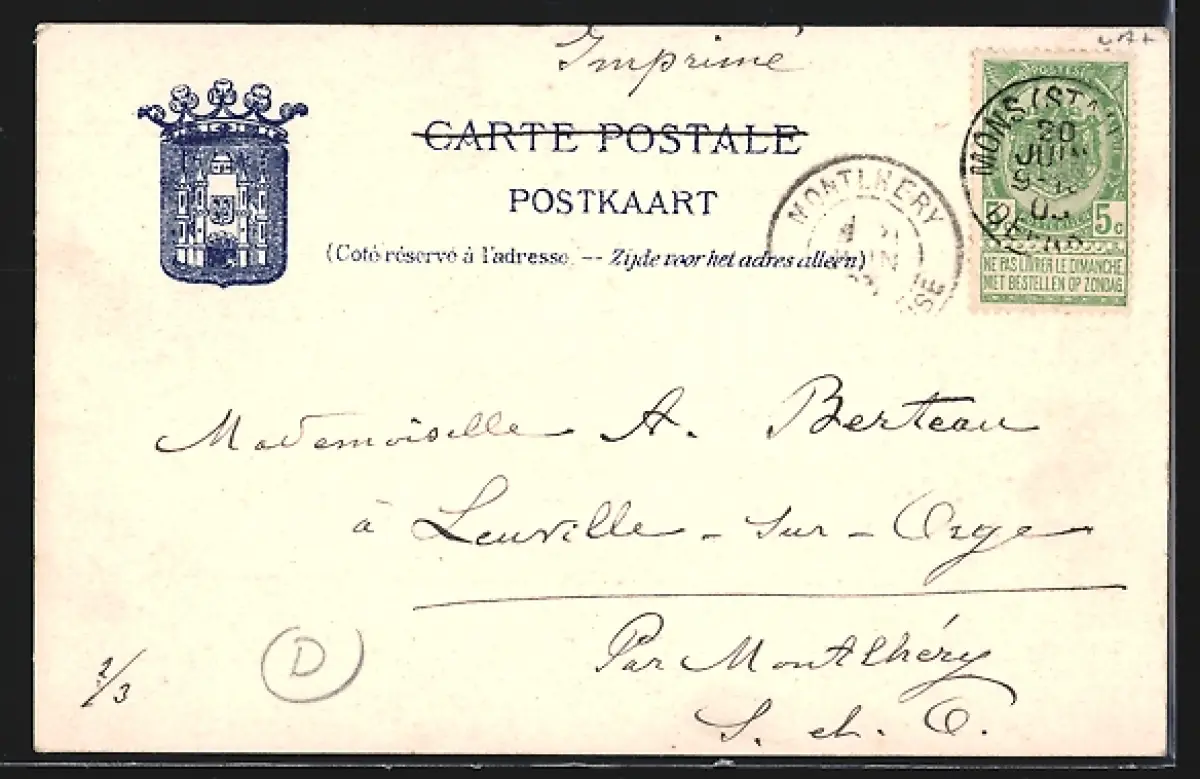 Imprimé
CARTE POSTALE
POSTKAART
(Coté réservé à l'adresse. -- Zijde voor het adres alleen)
MONTLHERY
MONS (STA
20
JUIN
5c
NE PAS LIVRER LE DIMANCHE
NIET BESTELLEN OP ZONDAG
Mademoiselle A. Berteau
à Leuville-sur-Orge
Par Montlhéry
S. et. O.
2/3
D